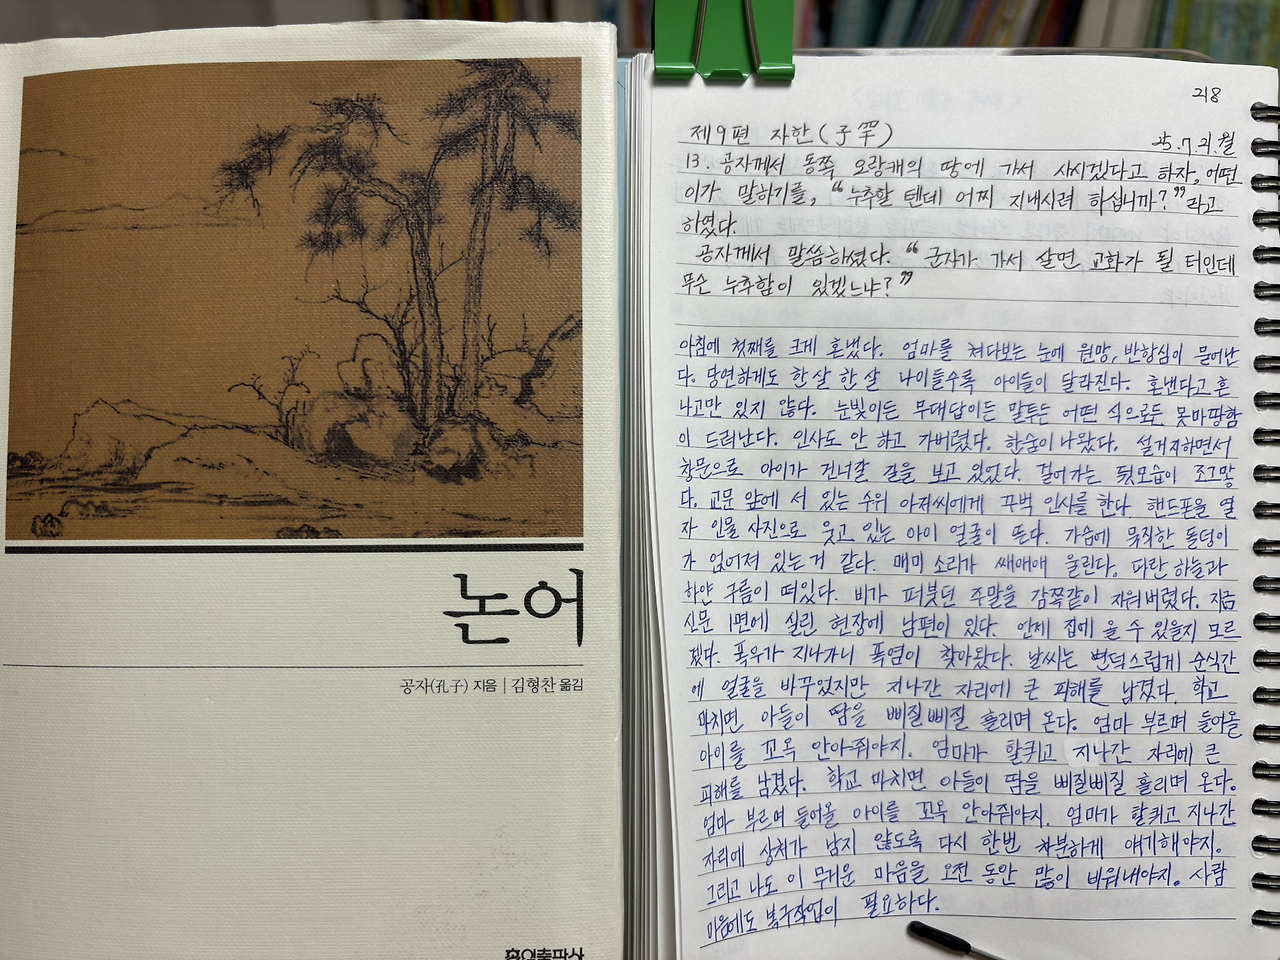 논어
공자(孔子) 지음 | 김형찬 옮김
홍익출판사
218
제9편 자한(子罕)
25.7.21.월
13. 공자께서 동쪽 오랑캐의 땅에 가서 사시겠다고 하자, 어떤
이가 말하기를, "누추할 텐데 어찌 지내시려 하십니까?"라고
하였다.
공자께서 말씀하셨다. "군자가 가서 살면 교화가 될 터인데
무슨 누추함이 있겠느냐?"
아침에 첫째를 크게 혼냈다. 엄마를 쳐다보는 눈에 원망, 반항심이 묻어난
다. 당연하게도 한 살 한 살 나이들수록 아이들이 달라진다. 혼낸다고 혼
나고만 있지 않다. 눈빛이든 무대답이든 말투든 어떤 식으로든 못마땅함
이 드러난다. 인사도 안 하고 가버렸다. 한숨이 나왔다. 설거지하면서
창문으로 아이가 건너갈 길을 보고 있었다. 걸어가는 뒷모습이 조그맣
다. 교문 앞에 서 있는 수위 아저씨에게 꾸벅 인사를 한다 핸드폰을 열
자 인물 사진으로 웃고 있는 아이 얼굴이 뜬다. 가슴에 묵직한 돌덩이
가 얹어져 있는 거 같다. 매미 소리가 쌔애애 울린다. 파란 하늘과
하얀 구름이 떠있다. 비가 퍼붓던 주말을 감쪽같이 지워버렸다. 지금
신문 1면에 실린 현장에 남편이 있다. 언제 집에 올 수 있을지 모르
겠다. 폭우가 지나가니 폭염이 찾아왔다. 날씨는 변덕스럽게 순식간
에 얼굴을 바꾸었지만 지나간 자리에 큰 피해를 남겼다. 학교
마치면 아들이 땀을 삐질삐질 흘리며 온다. 엄마 부르며 들어올
아이를 꼬옥 안아줘야지. 엄마가 할퀴고 지나간 자리에 큰
피해를 남겼다. 학교 마치면 아들이 땀을 삐질삐질 흘리며 온다.
엄마 부르며 들어올 아이를 꼬옥 안아줘야지. 엄마가 할퀴고 지나간
자리에 상처가 남지 않도록 다시 한번 차분하게 얘기해야지.
그리고 나도 이 무거운 마음을 오전 동안 많이 비워내야지. 사람
마음에도 복구작업이 필요하다.